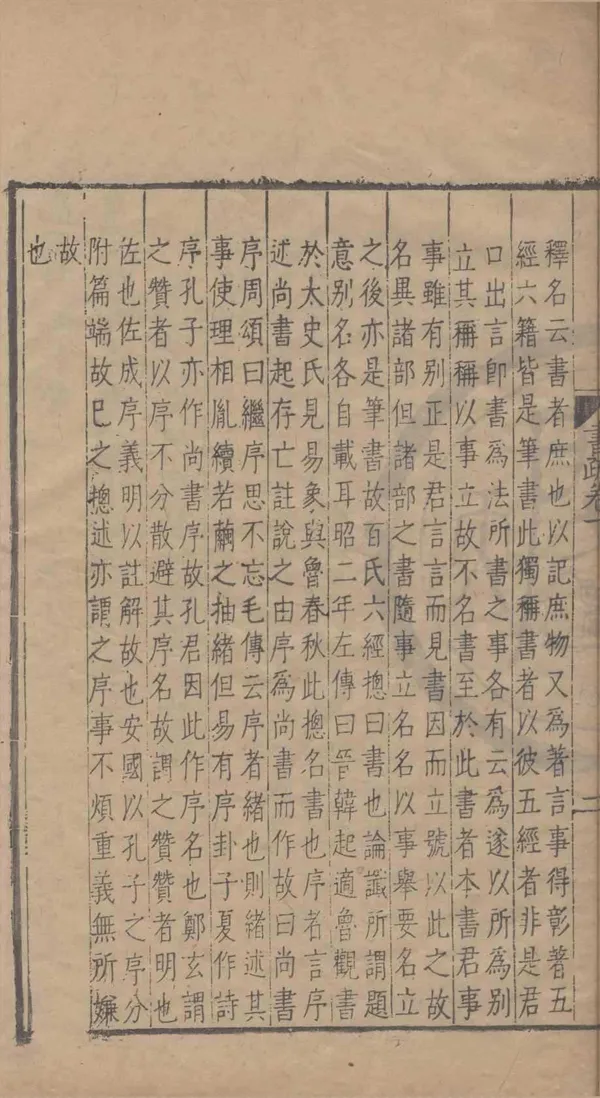 書疏卷一
二
釋名云書者庶也以記庶物又爲著言事得彰著五
經六籍皆是筆書此獨稱書者以彼五經者非是君
口出言即書爲法所書之事各有云爲遂以所爲別
立其稱稱以事立故不名書至於此書者本書君事
事雖有別正是君言言而見書因而立號以此之故
名異諸部但諸部之書隨事立名名以事舉要名立
之後亦是筆書故百氏六經摠曰書也論讖所謂題
意別名各自載耳昭二年左傳曰晉韓起適魯觀書
於太史氏見易象與魯春秋此摠名書也序者言序
述尚書起存亡註說之由序爲尚書而作故曰尚書
序周頌曰繼序思不忘毛傳云序者緒也則緒述其
事使理相胤續若繭之抽緒但易有序卦子夏作詩
序孔子亦作尚書序故孔君因此作序名也鄭玄謂
之贊者以序不分散避其序名故謂之贊贊者明也
佐也佐成序義明以註解故也安國以孔子之序分
附篇端故巳之摠述亦謂之序事不煩重義無所嫌
故
也